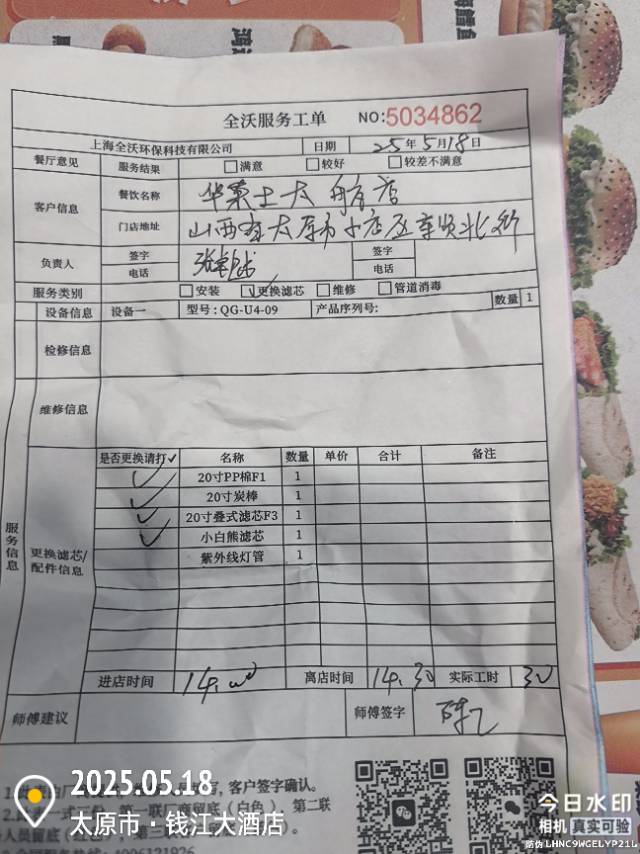 全沃服务工单 NO:5034862
上海全沃环保科技有限公司 日期 25年5月18日
餐厅意见 服务结果 □满意 □较好 □较差不满意
客户信息 餐饮名称 华莱士太航店
门店地址 山西省太原市小店区
负责人 签字 签字
电话 电话
服务类别 □安装 ☑更换滤芯 □维修 □管道消毒
设备信息 设备一 型号:QG-U4-09 产品序列号: 数量 1
检修信息
维修信息
服务信息
更换滤芯/配件信息
是否更换请打✓ 名称 数量 单价 合计 备注
✓ 20寸PP棉F1 1
✓ 20寸炭棒 1
✓ 20寸叠式滤芯F3 1
✓ 小白熊滤芯 1
紫外线灯管 1
进店时间 14.00 离店时间 14.30 实际工时 30
师傅建议 师傅签字
客户签字确认。
第一联厂商留底(白色)、第二联
人员留底
2025.05.18
太原市·钱江大酒店
今日水印
相机 真实可验
防伪 LHNC9WGELYP21L